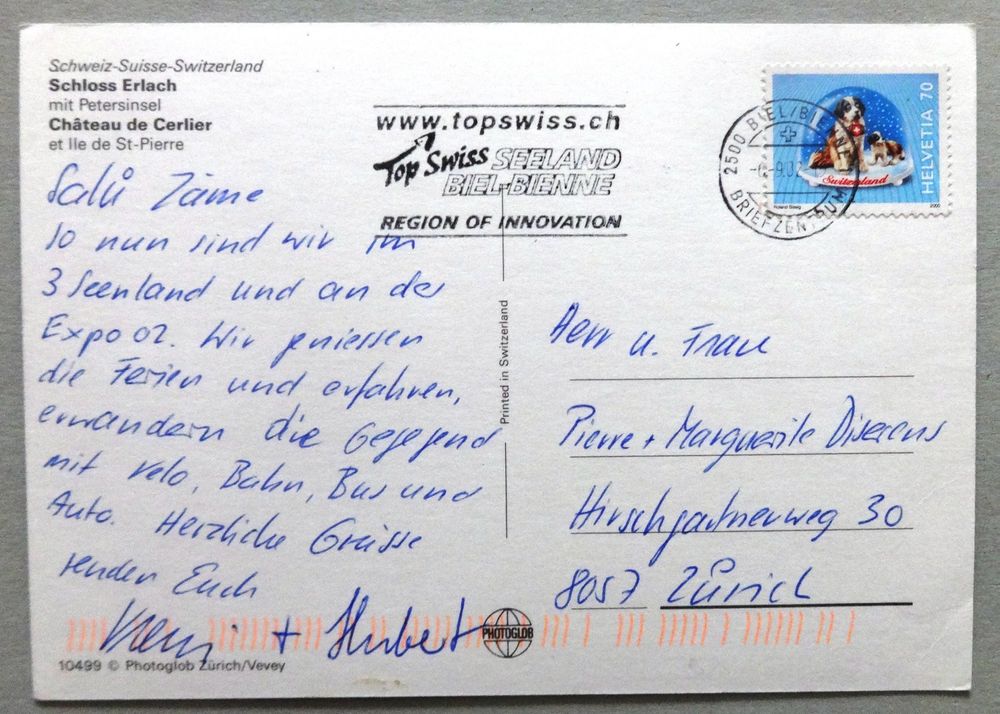 Schweiz-Suisse-Switzerland
Schloss Erlach
mit Petersinsel
Château de Cerlier
et Ile de St-Pierre
www.topswiss.ch
Top Swiss SEELAND
BIEL-BIENNE
REGION OF INNOVATION
2500 BIEL/BIENNE
BRIEFZENTRUM
Switzerland
HELVETIA 70
2000
Salü Zäme
so nun sind wir im
3 Seenland und an der
Expo 02. Wir geniessen
die Ferien und erfahren,
erwandern die Gegegend
mit Velo, Bahn, Bus und
Auto. Herzliche Grüsse
senden Euch
+ Hubert
Printed in Switzerland
Herr u. Frau
Pierre + Marguerite Diserens
Hirschgartnerweg 30
8057 Zürich
PHOTOGLOB
10499 © Photoglob Zürich/Vevey